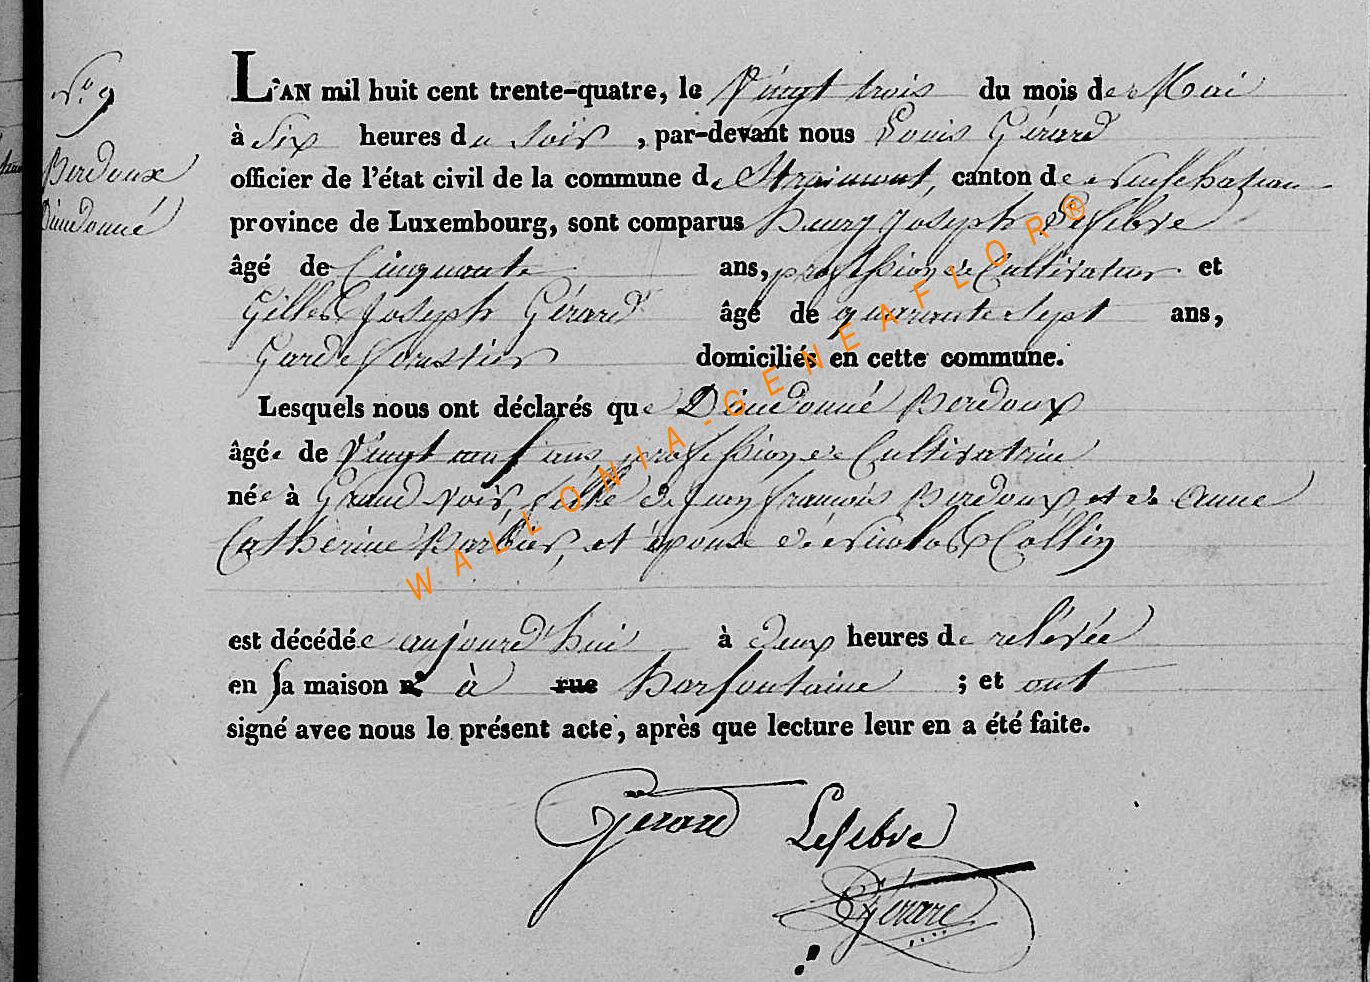 N.º 9
Berdoux
Dieudonné
L'AN mil huit cent trente-quatre, le Vingt trois du mois de Mai
à Six heures du soir, par-devant nous Louis Gérard
officier de l'état civil de la commune de Straimont, canton de Neufchateau
province de Luxembourg, sont comparus henry joseph Lefebvre
âgé de Cinquante ans, profession de Cultivateur et
Gilles Joseph Gérard âgé de quarante sept ans,
Garde forestier domiciliés en cette commune.
Lesquels nous ont déclarés que Dieudonné Berdoux
âgée de Vingt neuf ans profession de Cultivatrice
née à Grand voir, fille de jean françois Berdoux et de Anne
Catherine Barbier, et épouse de Nicolas Collin
est décédée aujourd'hui à deux heures de relevée
en sa maison nº à rue harfontaine ; et ont
signé avec nous le présent acte, après que lecture leur en a été faite.
Gérard Lefebvre
Gérard
WALLONIA-GENEAFLOR®